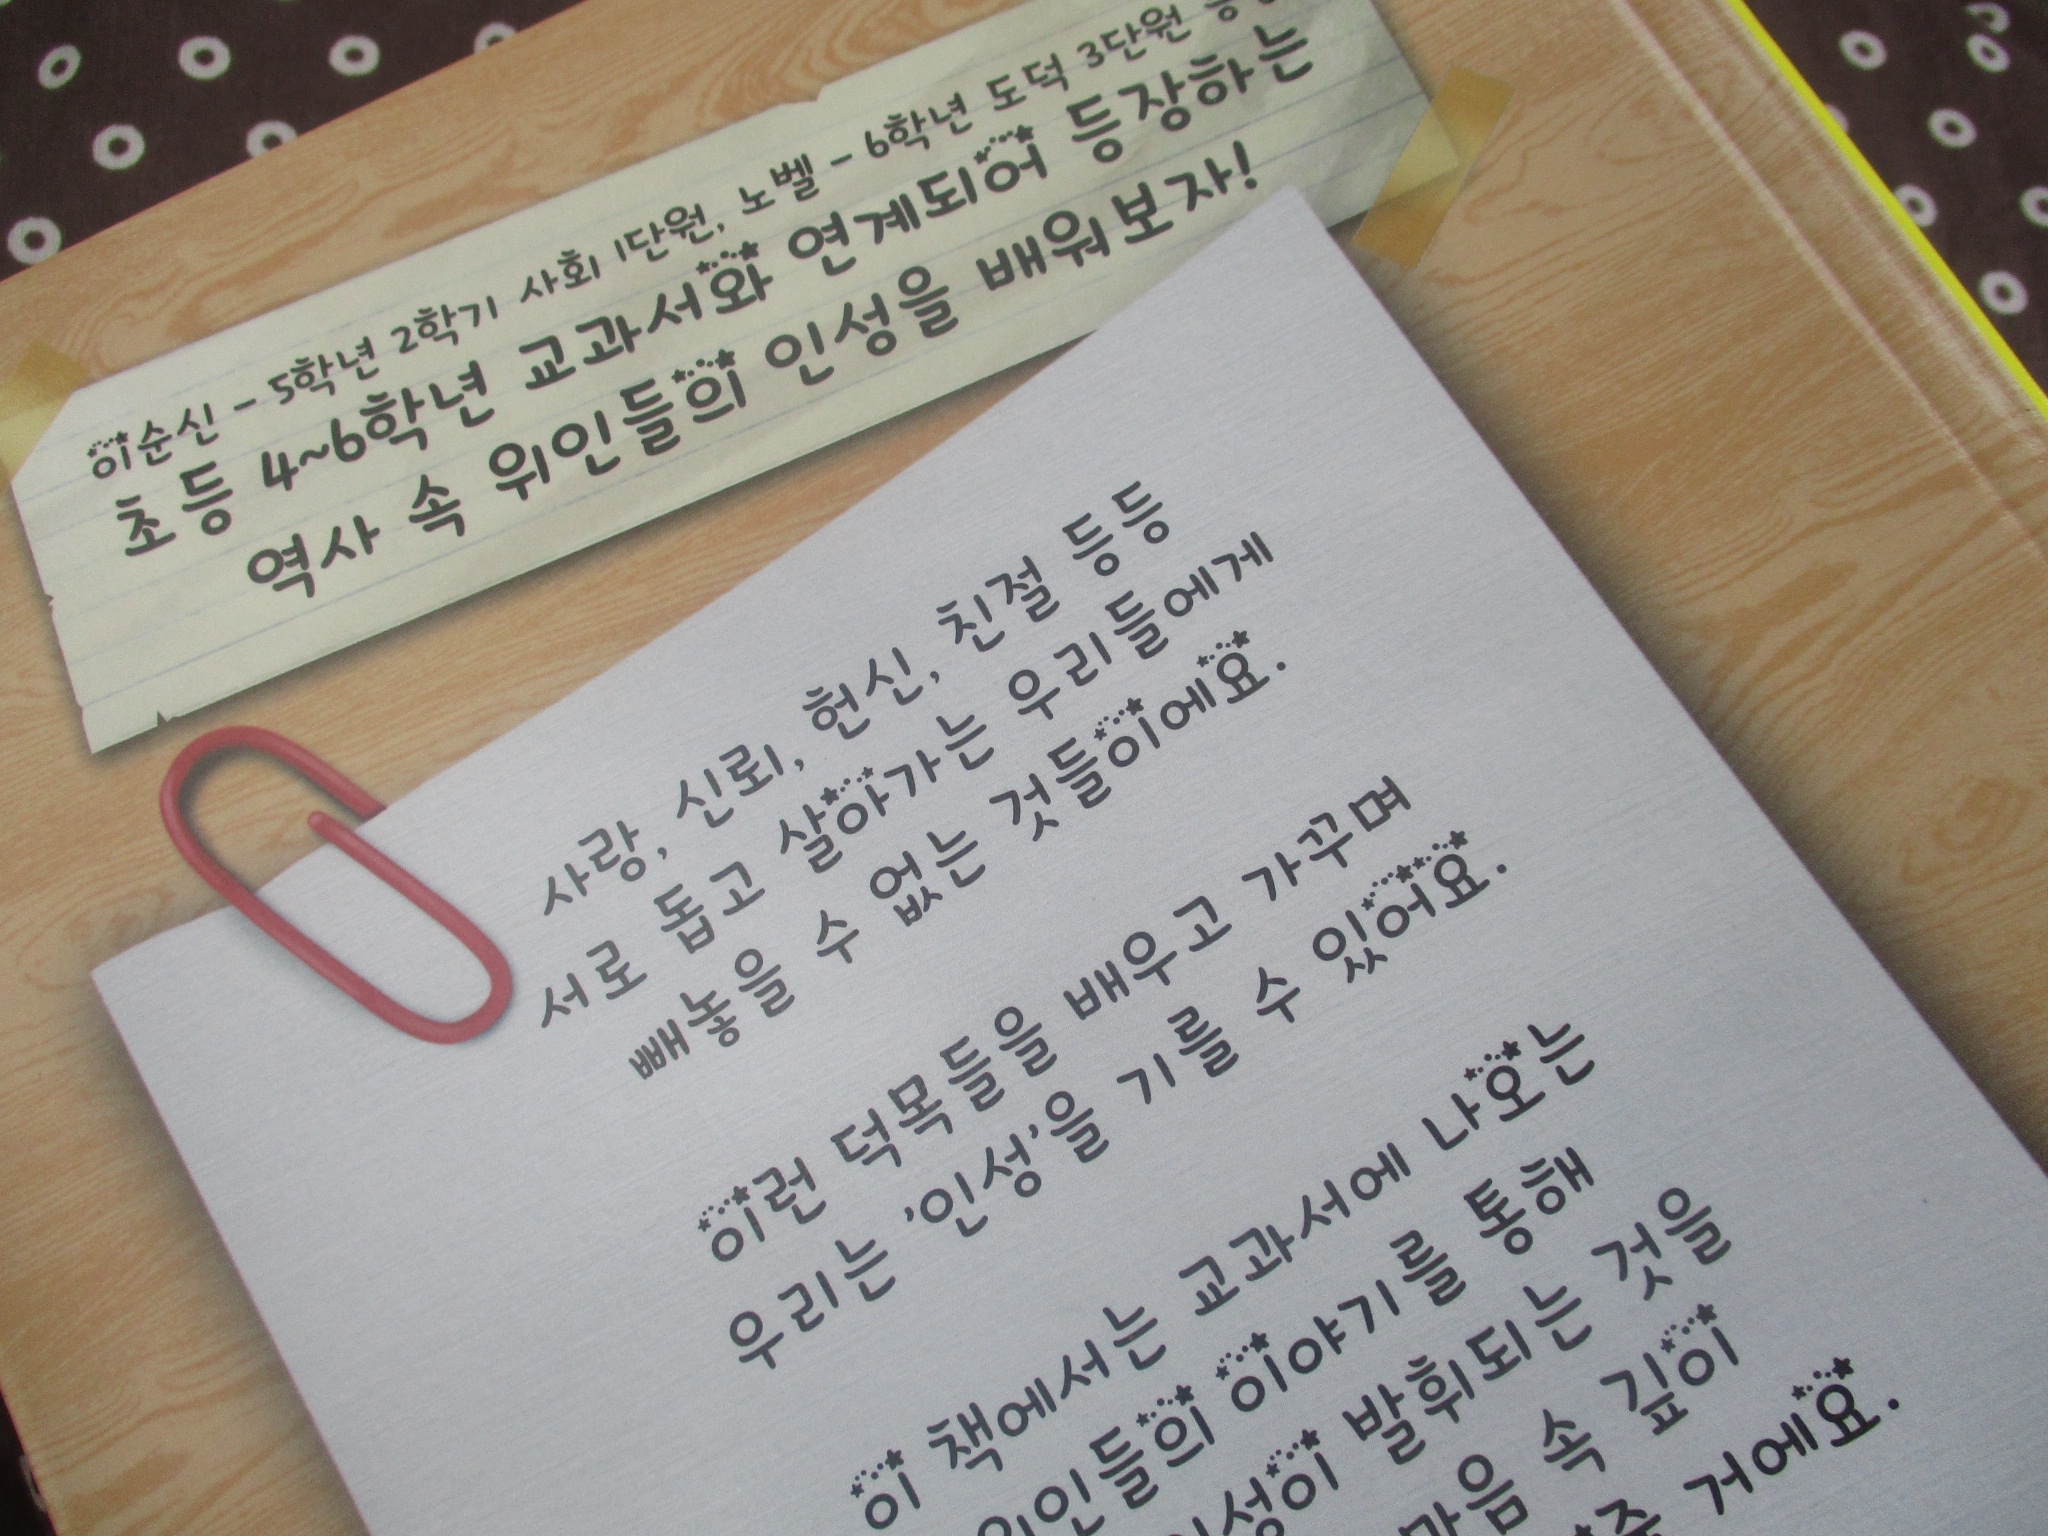 이순신 - 5학년 2학기 사회 1단원, 노벨 - 6학년 도덕 3단원
초등 4~6학년 교과서와 연계되어 등장하는
역사 속 위인들의 인성을 배워보자!
사랑, 신뢰, 헌신, 친절 등등
서로 돕고 살아가는 우리들에게
빼놓을 수 없는 것들이에요.
이런 덕목들을 배우고 가꾸며
우리는 '인성'을 기를 수 있어요.
이 책에서는 교과서에 나오는
위인들의 이야기를 통해
발휘되는 것을
마음 속 깊이
거에요.